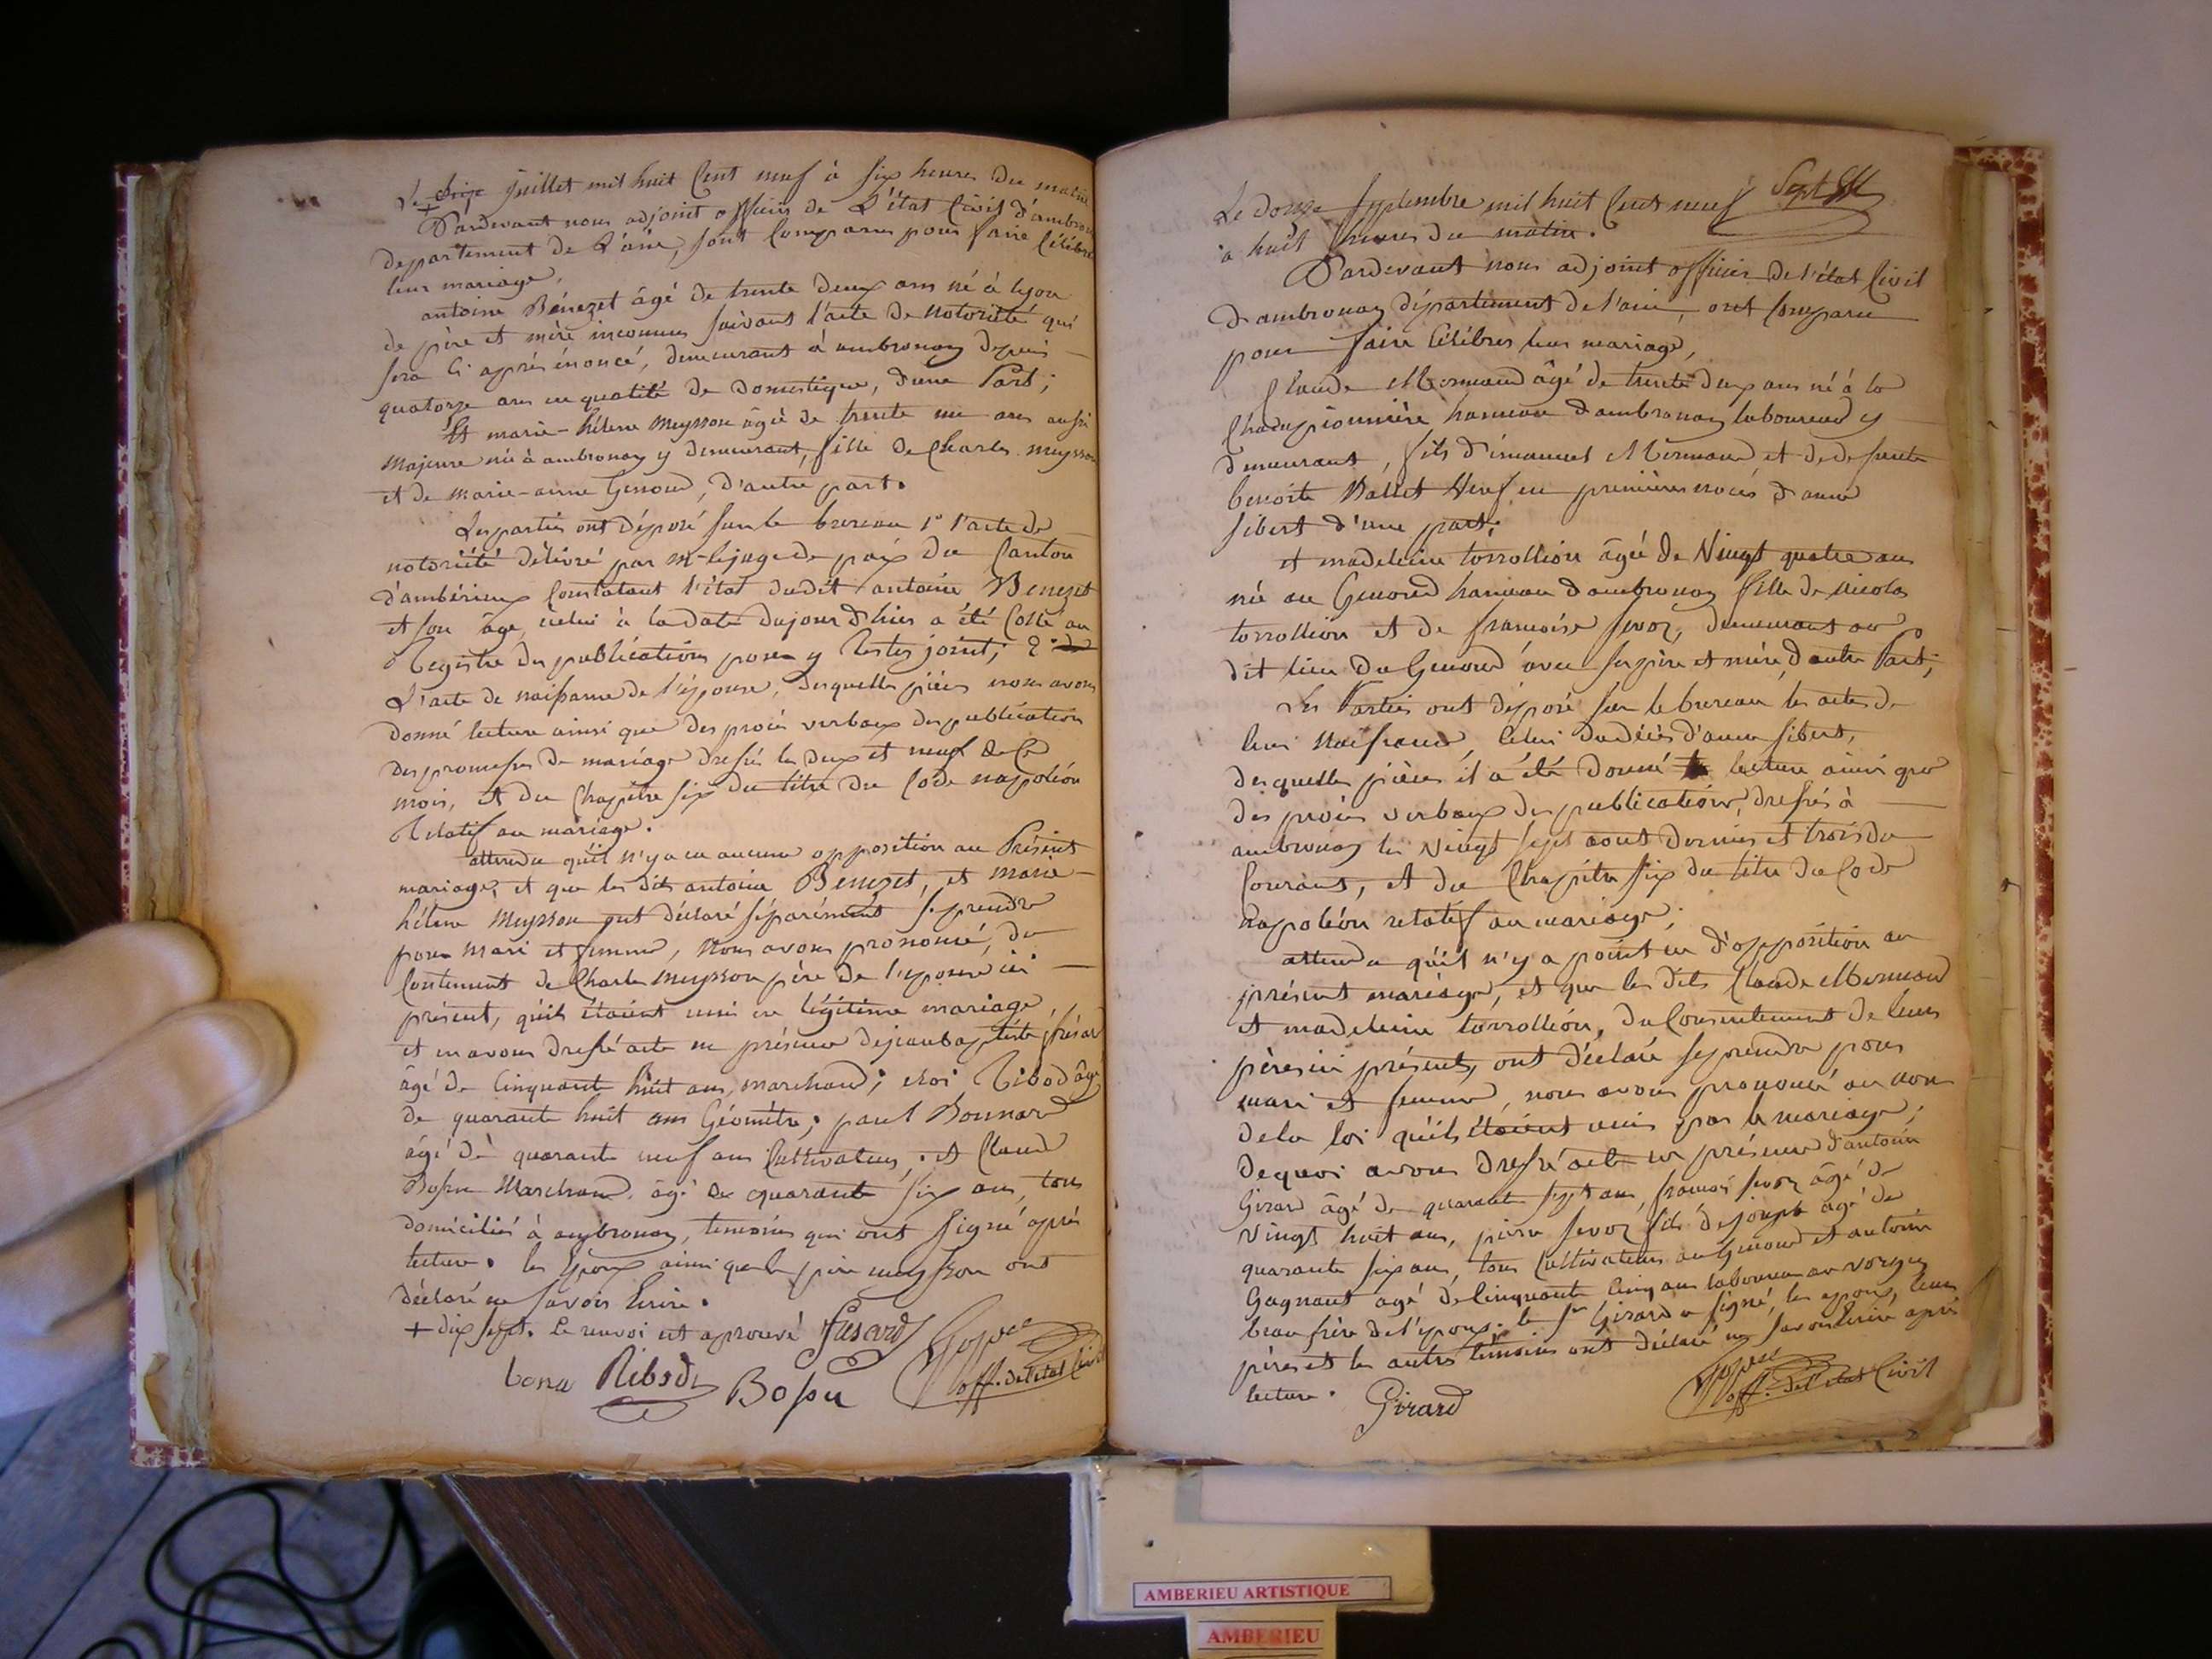 Le Seize juillet mil huit Cent neuf à six heures du matin
Pardevant nous adjoint officier de L'état Civil d'ambron
departement de L'ain, sont Comparus pour faire Célébrer
leur mariage,
antoine Bénezet âgé de trente deux ans né à lyon
de père et mère inconnus suivant l'acte de notoriété qui
sera Ci après énoncé, demeurant à ambronay depuis
quatorze ans en qualité de domestique, d'une Part;
Et marie-hélène meysson âgée de trente un ans aussi
majeure née à ambronay y demeurant, fille de Charles meysson
et de marie-anne Genoud, d'autre part.
Les parties ont déposé sur le bureau 1° l'acte de
notoriété délivré par mr le juge de paix du Canton
d'ambérieux Constatant l'état dudit antoine Benezet
et son âge, celui à la date du jour d'hier a été Collé au
Registre des publications pour y Rester joint; 2°
L'acte de naissance de l'épouse, desquelles pièces nous avons
donné lecture ainsi que des procès verbaux des publications
des promesses de mariage dressés les deux et neuf de Ce
mois, et du Chapitre six du titre du Code napoléon
Relatif au mariage.
attendu qu'il n'y a eu aucune opposition au Présent
mariage, et que les dits antoine Benezet, et marie
hélène meysson ont déclaré séparément se prendre
pour mari et femme, nous avons prononcé, du
Contement de Charles meysson père de l'épouse ici
présent, qu'ils étaient unis en légitime mariage
et en avons dressé acte en présence de jean baptiste frésard
âgé de Cinquante huit ans, marchand; eloi Ribod âgé
de quarante huit ans Géomètre; paul Bonnard
âgé de quarante neuf ans Cultivateur; et Claude
Bossu Marchand, âgé de quarante six ans, tous
domiciliés à ambronay, temoins qui ont signé après
lecture. les Epoux ainsi que le père meysson ont
déclaré ne savoir Ecrire.
+ dix sept. Le renvoi est aprouvé
bona Ribod Bossu off. de l'état Civil
Le douze septembre mil huit Cent neuf
à huit heures du matin.
Pardevant nous adjoint officier de l'état Civil
d'ambronay département de l'ain, ont Comparu
pour faire Célébrer leur mariage,
Claude Mermand âgé de trente deux ans né à la
hameau d'ambronay laboureur y
demeurant, fils d'émanuel Mermand et de defunte
benoite Vallet Veuf en premières noces d'anne
sibert d'une part;
et madeleine torrollion âgée de Vingt quatre ans
née au Genoud hameau d'ambronay fille de nicolas
torrollion et de françoise sevoz, demeurant au
dit lieu du Genoud avec ses père et mère, d'autre Part;
Les Parties ont déposé sur le bureau les actes de
leurs naissances, Celui du décès d'anne sibert,
desquelles pièces il a été donné lecture ainsi que
des procès verbaux des publications, dressés à
ambronay les Vingt sept aout dernier et trois du
Courant, et du Chapitre six du titre du Code
napoléon relatif au mariage;
attendu qu'il n'y a point eu d'opposition au
présent mariage, et que les dits Claude Mermand
et madeleine torrollion, du Consentement de leurs
pères ici présents, ont déclaré se prendre pour
mari et femme, nous avons prononcé au nom
de la loi qu'ils étaient unis par le mariage;
de quoi avons dressé acte en présence d'antoine
Girard âgé de quarante sept ans, françois sevoz âgé de
Vingt huit ans, pierre sevoz fils de joseph âgé de
quarante six ans, tous Cultivateurs au Genoud et antoine
Gagnant agé de Cinquante Cinq ans laboureur au
beau frère de l'époux. le sr Girard a signé, les epoux, leurs
pères et les autres témoins ont déclaré ne savoir Ecrire après
lecture. Girard off. de l'etat Civil
AMBERIEU ARTISTIQUE
AMBERIEU